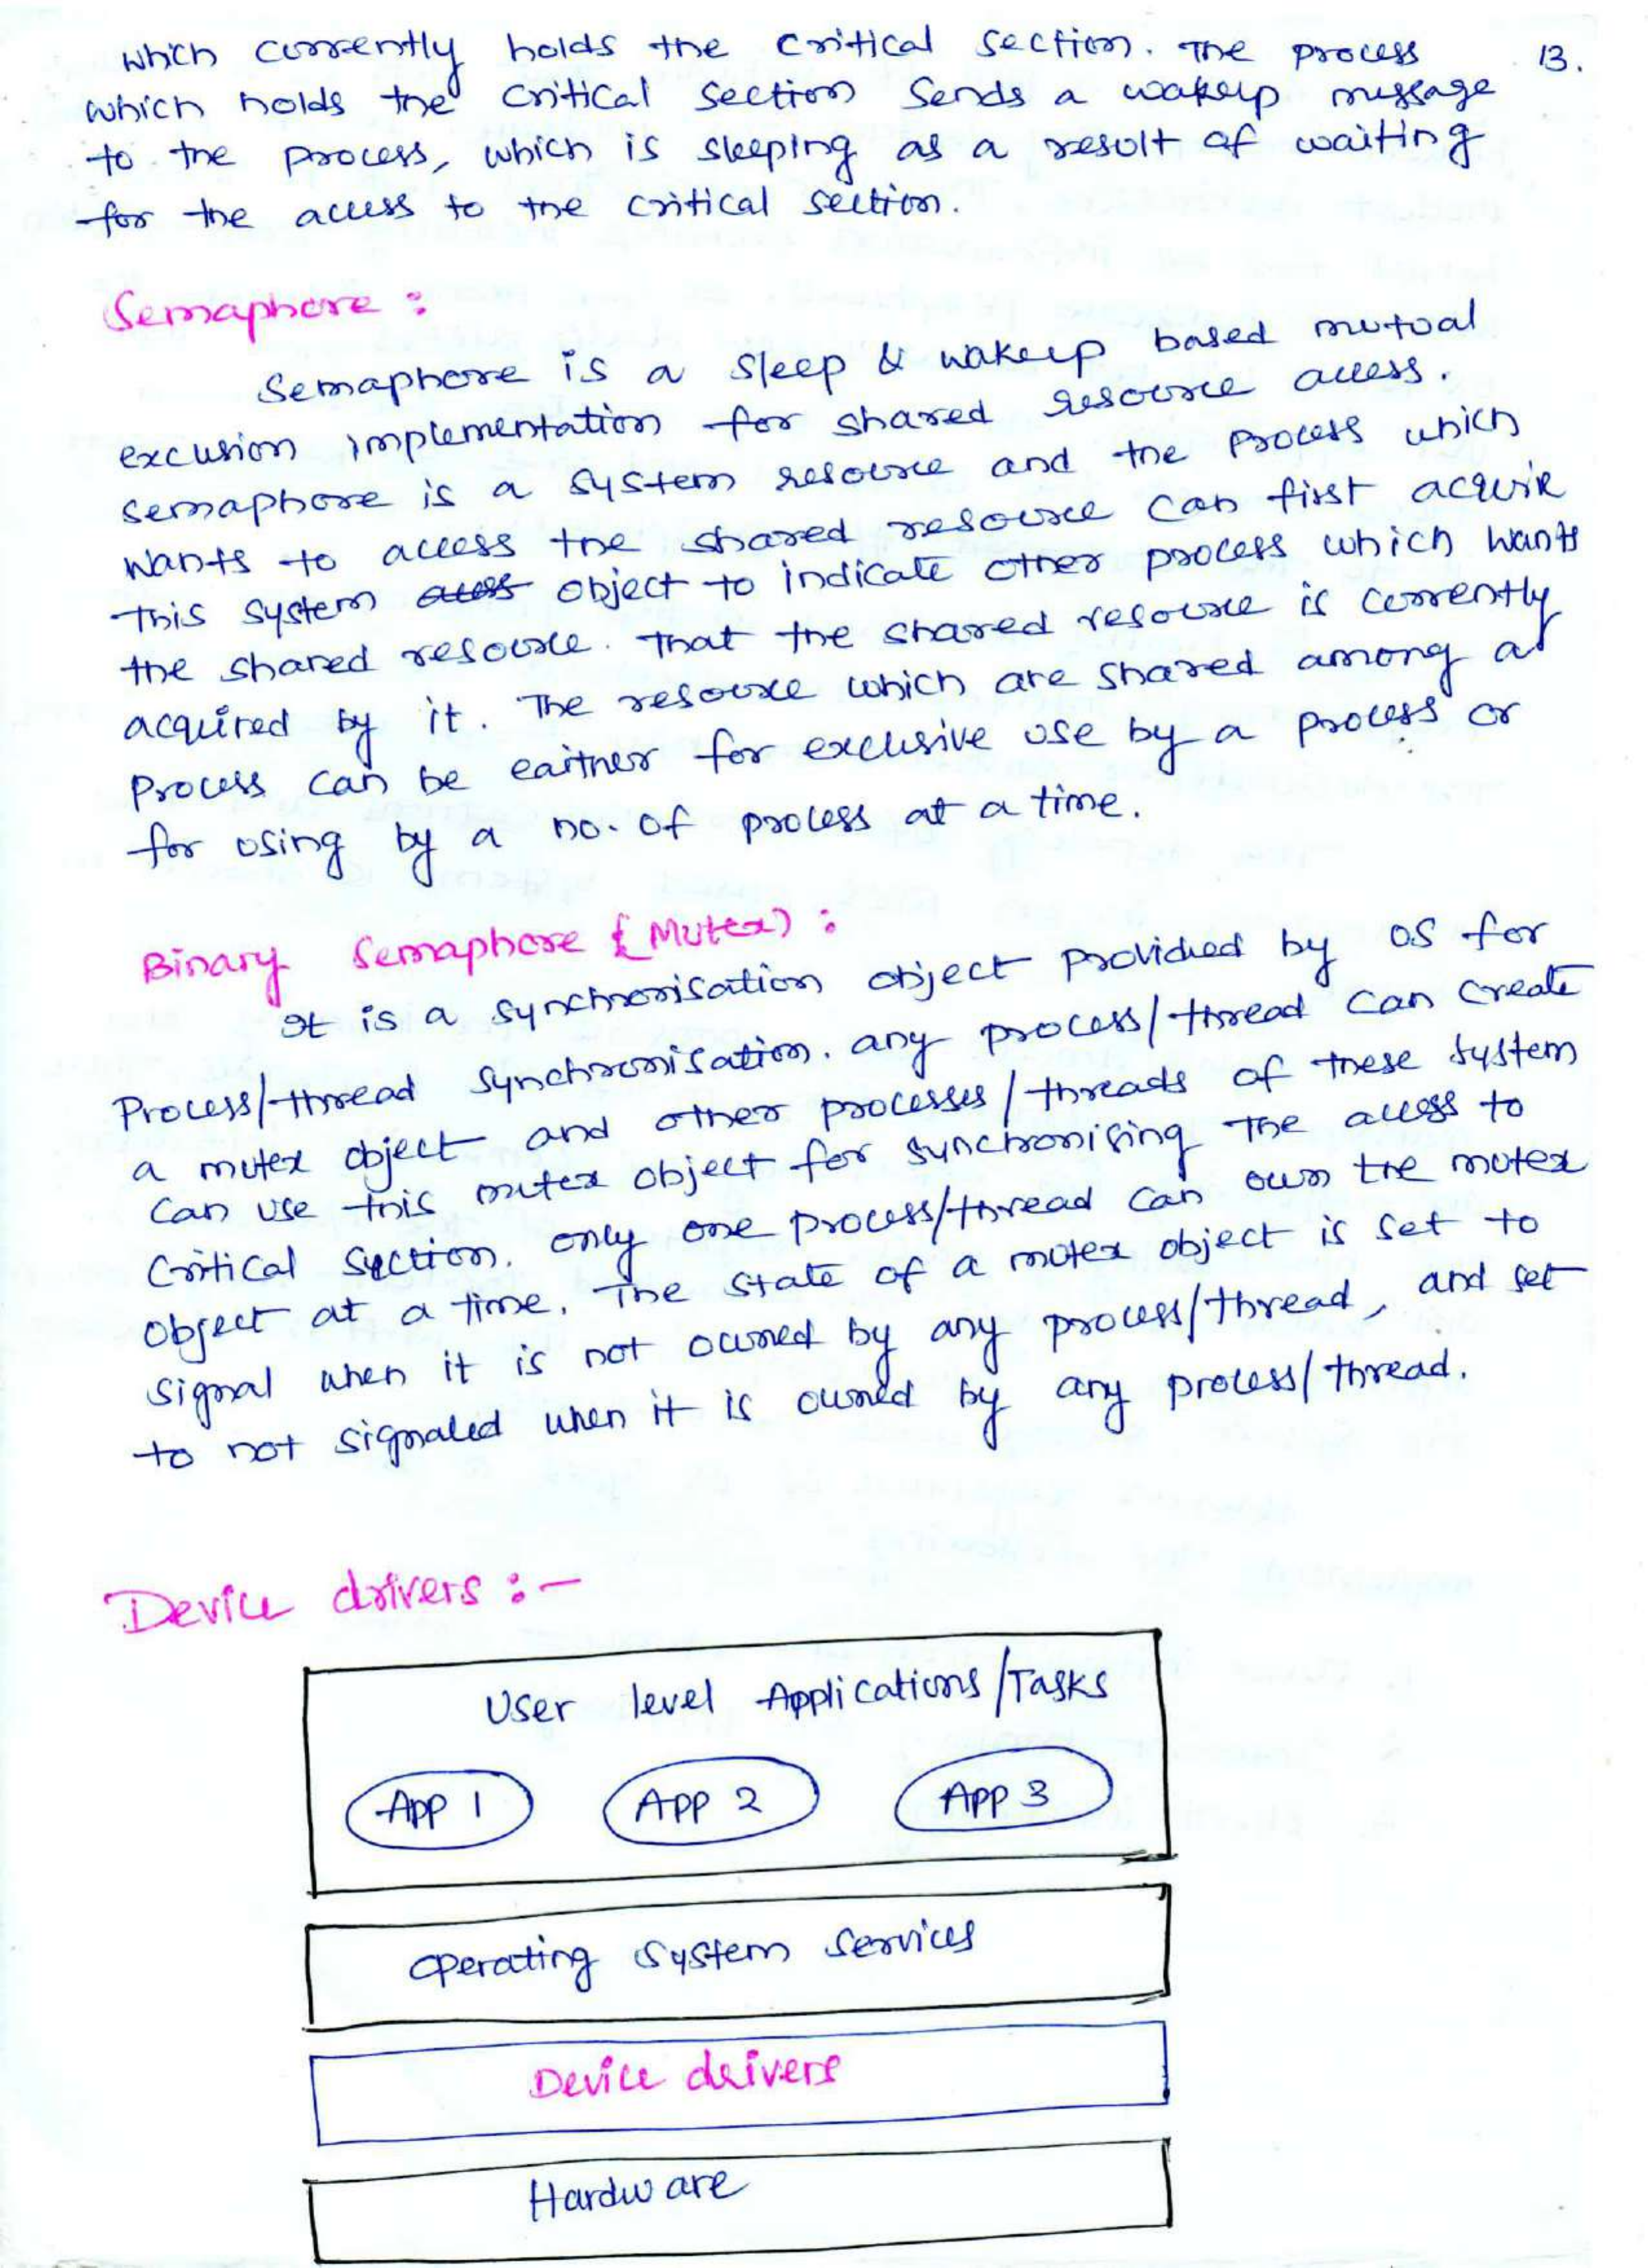 which currently holds the critical section. The process 13.
which holds the critical section sends a wakeup message
to the process, which is sleeping as a result of waiting
for the access to the critical section.
Semaphore :
Semaphore is a sleep & wakeup based mutual
excusion implementation for shared resource access.
semaphore is a system resource and the process which
wants to access the shared resource can first acquire
this system object to indicate other process which wants
the shared resource. That the shared resource is currently
acquired by it. The resource which are shared among a
process can be eaither for exclusive use by a process or
for using by a no. of process at a time.
Binary Semaphore (Mutex) :
It is a synchronisation object provided by OS for
Process/thread synchronisation. any process/thread can create
a mutex object and other processes/threads of these system
can use this mutex object for synchronising the access to
critical section. only one process/thread can own the mutex
object at a time. The state of a mutex object is set to
signal when it is not owned by any process/thread, and set
to not signaled when it is owned by any process/thread.
Device drivers :-
User level Applications/Tasks
App 1 APP 2 APP 3
operating system services
Device drivers
Hardware